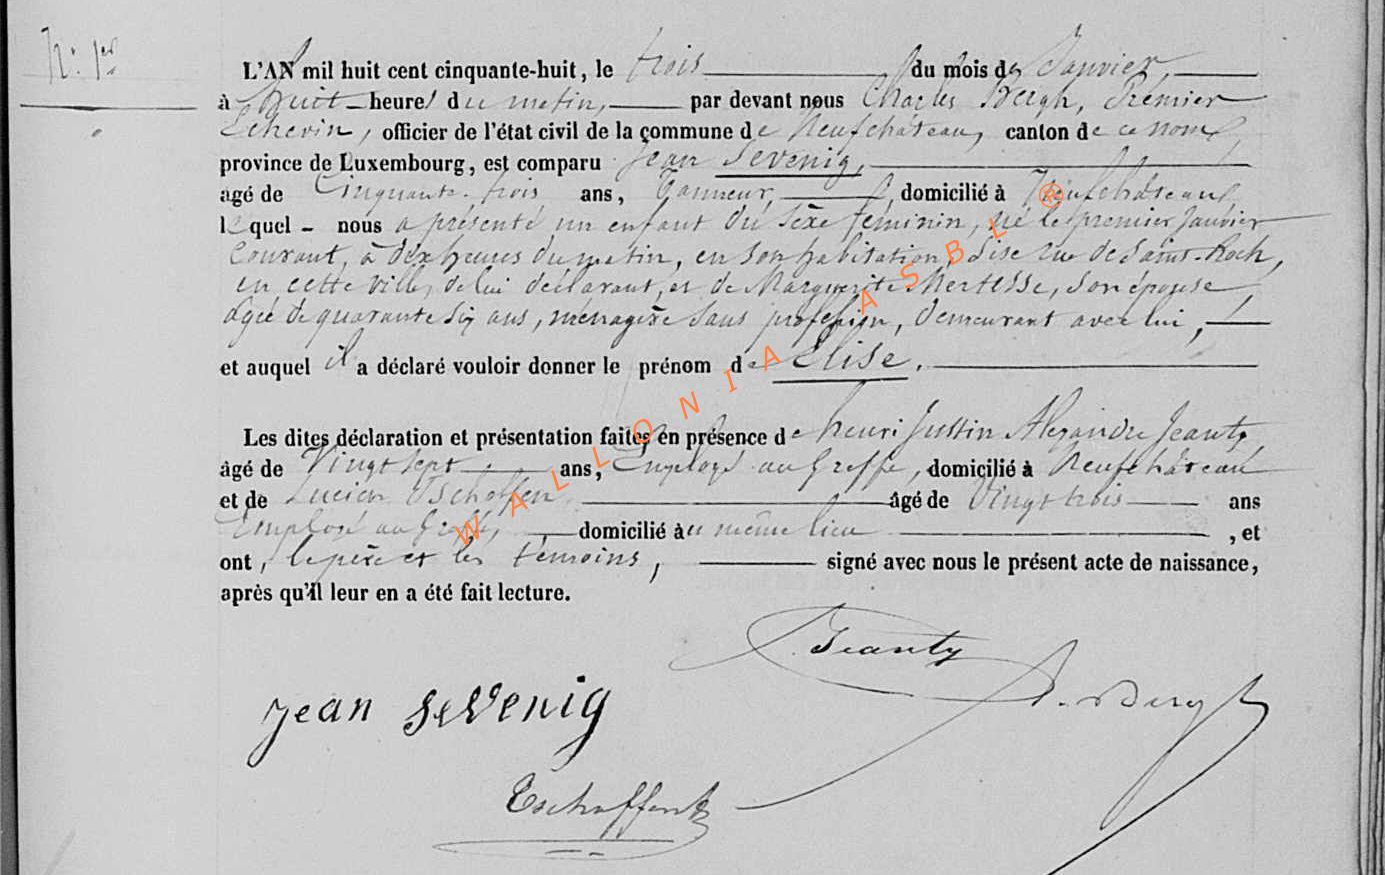 N.° 1er
L'AN mil huit cent cinquante-huit, le trois du mois de Janvier,
à huit heures du matin, par devant nous Charles Bergh, Premier
Echevin, officier de l'état civil de la commune de Neufchâteau, canton de ce nom,
province de Luxembourg, est comparu Jean Sevenig,
âgé de Cinquante-trois ans, Tanneur, domicilié à Neufchâteau,
lequel - nous a présenté un enfant du sexe féminin, né le premier Janvier
Courant, à dix heures du matin, en son habitation, Sise rue de Saint-Roch,
en cette ville, de lui déclarant, et de Marguerite Mertesse, son épouse,
âgée de quarante six ans, ménagère sans profession, demeurant avec lui,
et auquel il a déclaré vouloir donner le prénom de Elise.
Les dites déclaration et présentation faites en présence de henri Justin Alexandre Jeanty
âgé de Vingt sept ans, Employé au Greffe, domicilié à Neufchâteau
et de Lucien Tschoffen âgé de Vingt trois ans
Employé au Greffe, domicilié au même lieu, et
ont, le père et les témoins, signé avec nous le présent acte de naissance,
après qu'il leur en a été fait lecture.
Jeanty
Jean Sevenig
Bergh
Tschoffen
WALLONIA ASBL ®